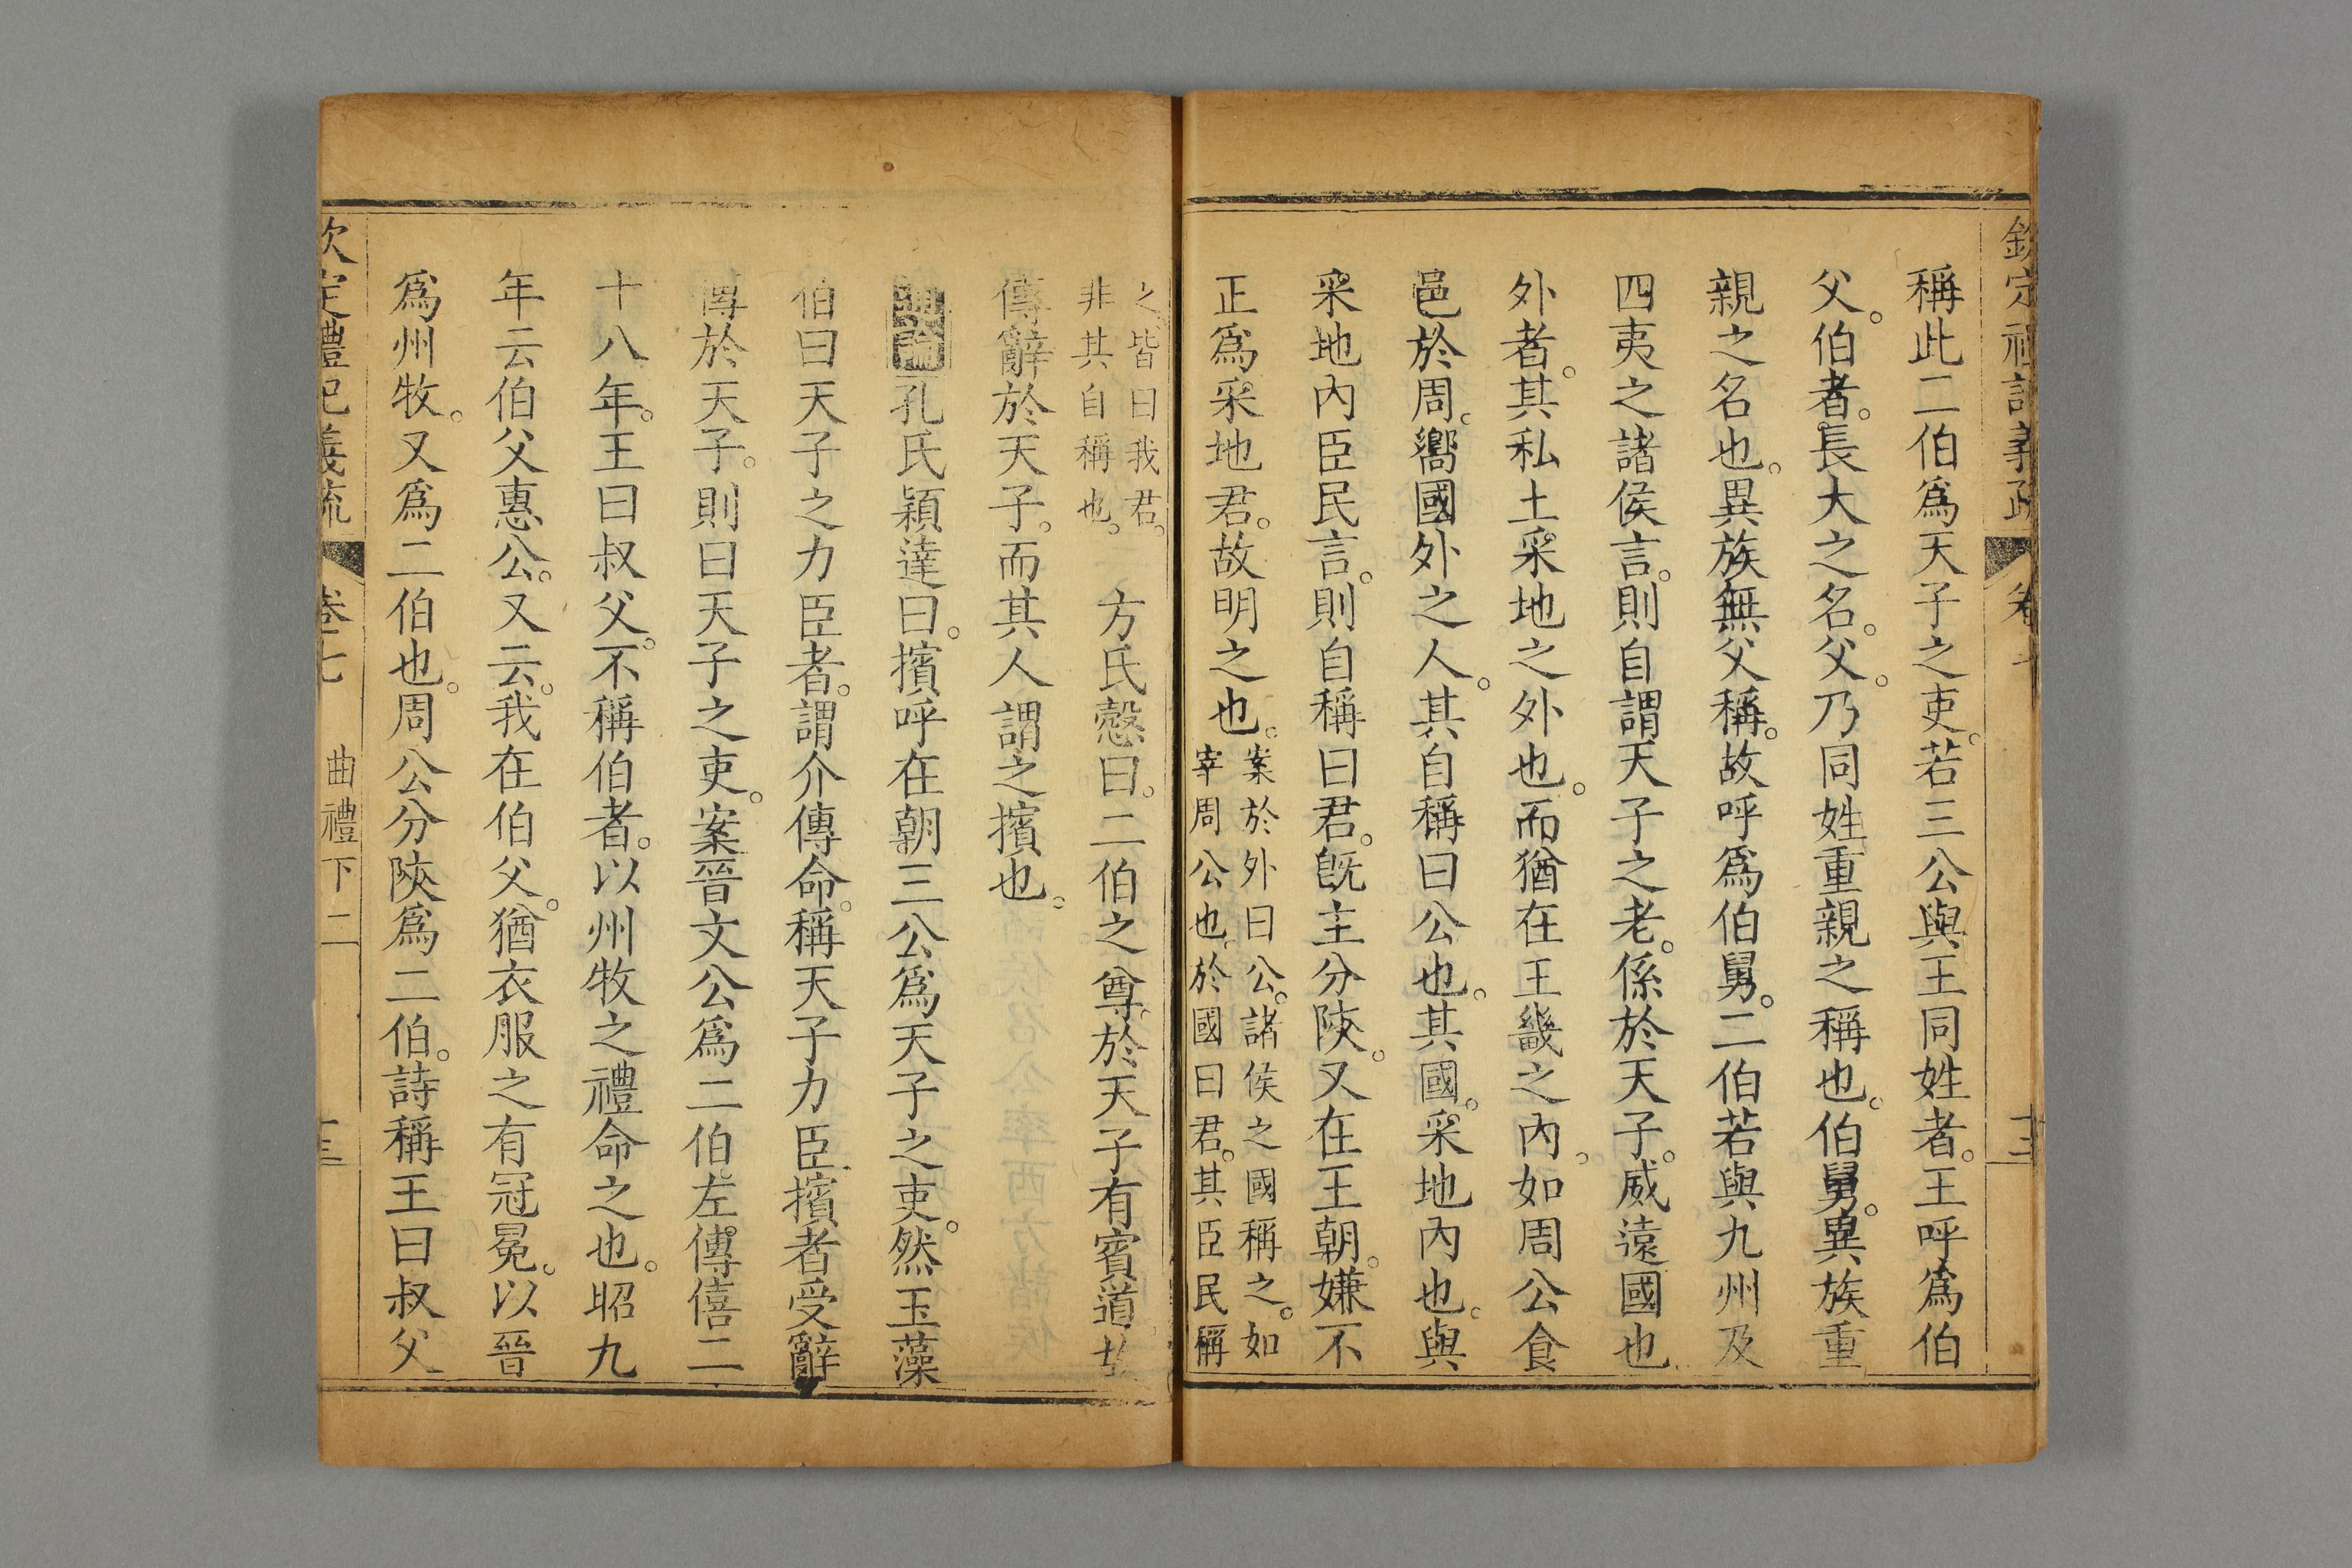 欽定禮記義疏 卷七 十三
稱此二伯爲天子之吏。若三公與王同姓者。王呼爲伯
父。伯者。長大之名。父。乃同姓重親之稱也。伯舅。異族重
親之名也。異族無父稱。故呼爲伯舅。二伯若與九州及
四夷之諸侯言。則自謂天子之老。係於天子。威遠國也。
外者。其私土采地之外也。而猶在王畿之內。如周公食
邑於周。嚮國外之人。其自稱曰公也。其國。采地內也。與
采地內臣民言。則自稱曰君。旣主分陝。又在王朝。嫌不
正爲采地君。故明之也。
案於外曰公。諸侯之國稱之。如
宰周公也。於國曰君。其臣民稱
之。皆曰我君。
非其自稱也。
方氏慤曰。二伯之尊。於天子有賓道。故
傳辭於天子。而其人謂之擯也。
通論孔氏穎達曰。擯呼在朝三公爲天子之吏。然玉藻
伯曰天子之力臣者。謂介傳命。稱天子力臣。擯者受辭
傳於天子。則曰天子之吏。案晉文公爲二伯。左傳僖二
十八年。王曰叔父。不稱伯者。以州牧之禮命之也。昭九
年云伯父惠公。又云。我在伯父。猶衣服之有冠冕。以晉
爲州牧。又爲二伯也。周公分陝爲二伯。詩稱王曰叔父
欽定禮記義疏 卷七 曲禮下二 十三